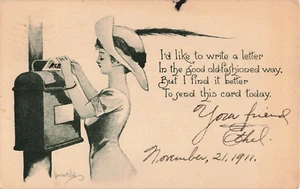 I'd like to write a letter
In the good old-fashioned way,
But I find it better
To send this card today.
Your friend
Ethel.
November, 21, 1911.